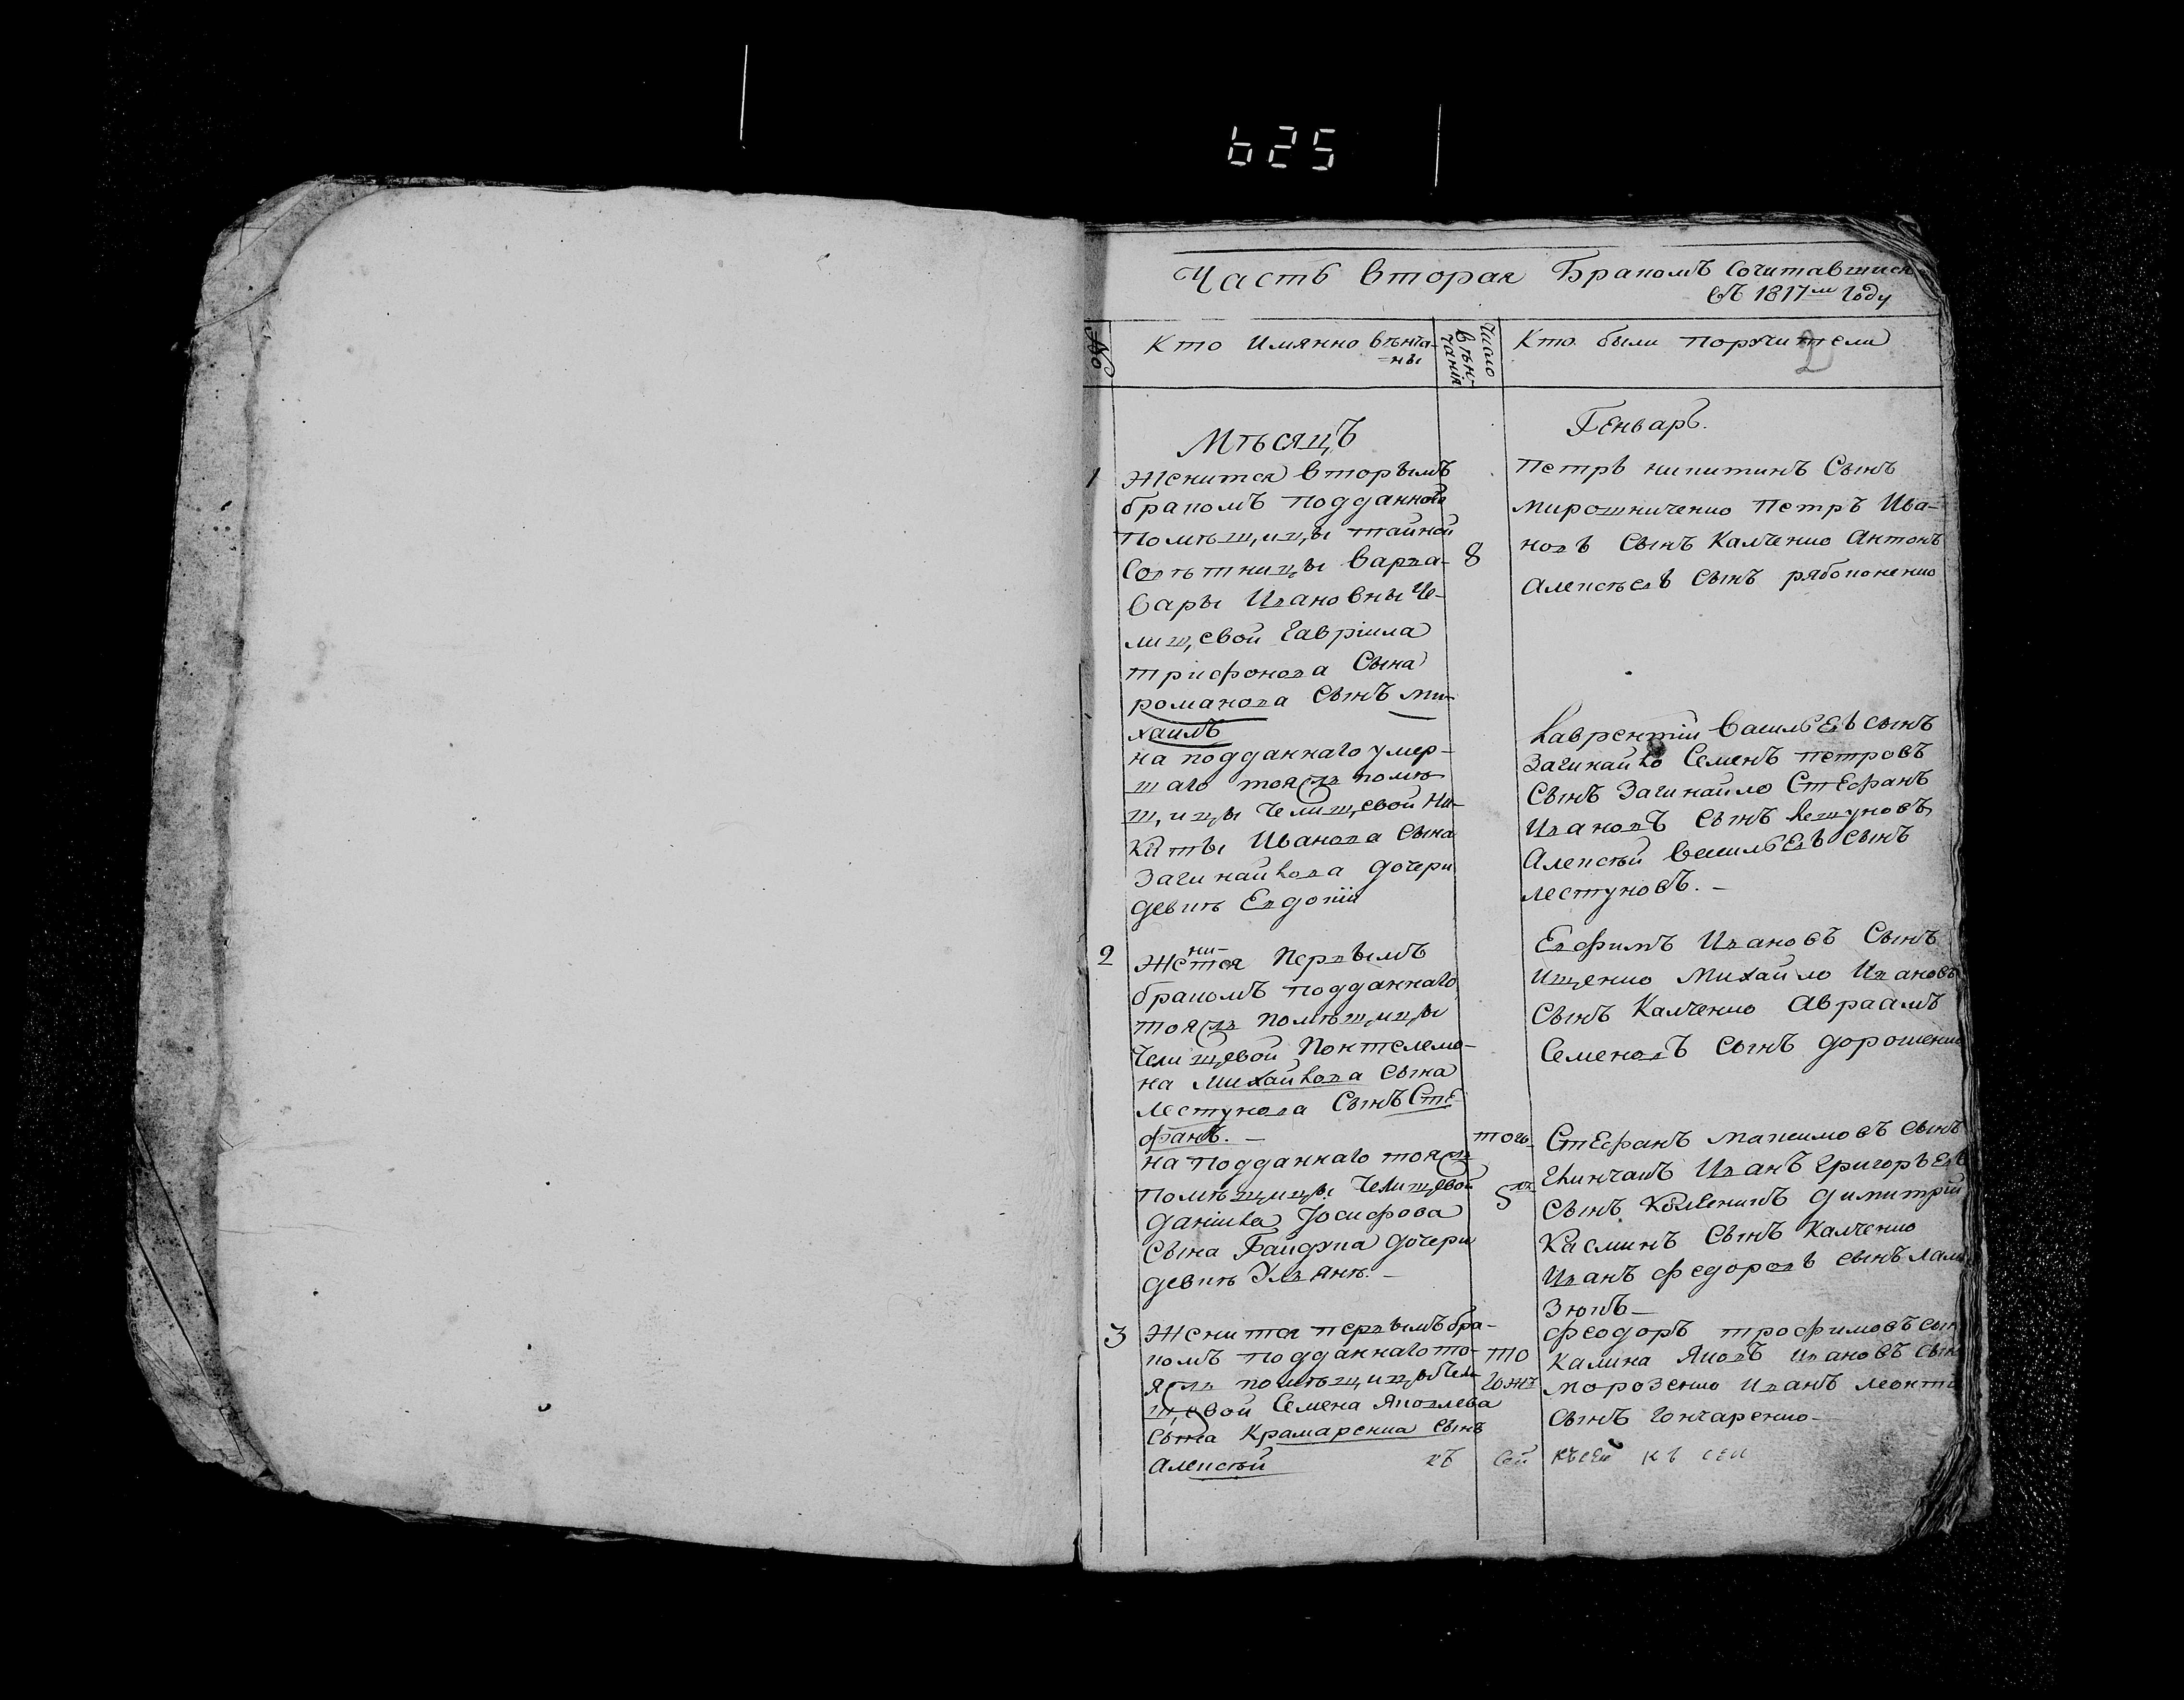 625
Часть вторая Бракомъ Сочитавшися
въ 1817м Году
№
Кто Имянно вѣнча-
-ны
Число
вѣн-
чанія
Кто были поручители
2
Мѣсяцъ
Генварь.
1
Женится вторымъ
бракомъ подданного
помѣщицы тайной
Совѣтницы Варва-
вары Ивановны Че-
лищевой Гавріила
трифонова Сына
романова Сынъ Ми-
хаилъ
на подданнаго умер-
шаго тояжъ помѣ
щицы Челищевой Ни-
киты Иванова Сына
Загинайлова дочери
девкѣ Евдокіи
8
Петръ никитинъ Сынъ
мирошниченко Петръ Ива-
новъ Сынъ Калченко Антонъ
Алексѣевъ Сынъ рябоконенко
Лаврентій Васильевъ сынъ
Загинайло Семенъ петровъ
Сынъ Загинайло Стефанъ
Ивановъ Сынъ
Алексѣй Васильевъ сынъ
лестуновъ. -
2
Женится Первымъ
бракомъ подданнаго
тояжъ помѣщицы
Челищевой Понтелемо-
на Михайлова сына
лестунова Сынъ Сте
фанъ. -
на подданнаго тояжъ
помѣщицы Челищевой
даніила Іосифова
Сына Гайдука дочери
девкѣ Ульянѣ. -
тогож
Евфимъ Ивановъ Сынъ
Ищенко Михайло Ивановъ
Сынъ Калченко Авраамъ
Семеновъ сынъ дорошенко
Стефанъ максимовъ сынъ
Иванъ Григорьевъ
Сынъ димитрій
Касминъ Сынъ Калченко
Иванъ федоровъ сынъ
зюкъ-
3
Женится первымъ бра-
комъ подданнаго то-
яжъ помѣщицы Чели
щевой Семена Яковлева
сына Крамаренка сынъ
Алексѣй
то
гожъ
феодоръ трофимовъ сын
Калина Яковъ ивановъ сын
морозенко Иванъ леонти
сынъ гончаренко-
къ сей къ сей къ сей